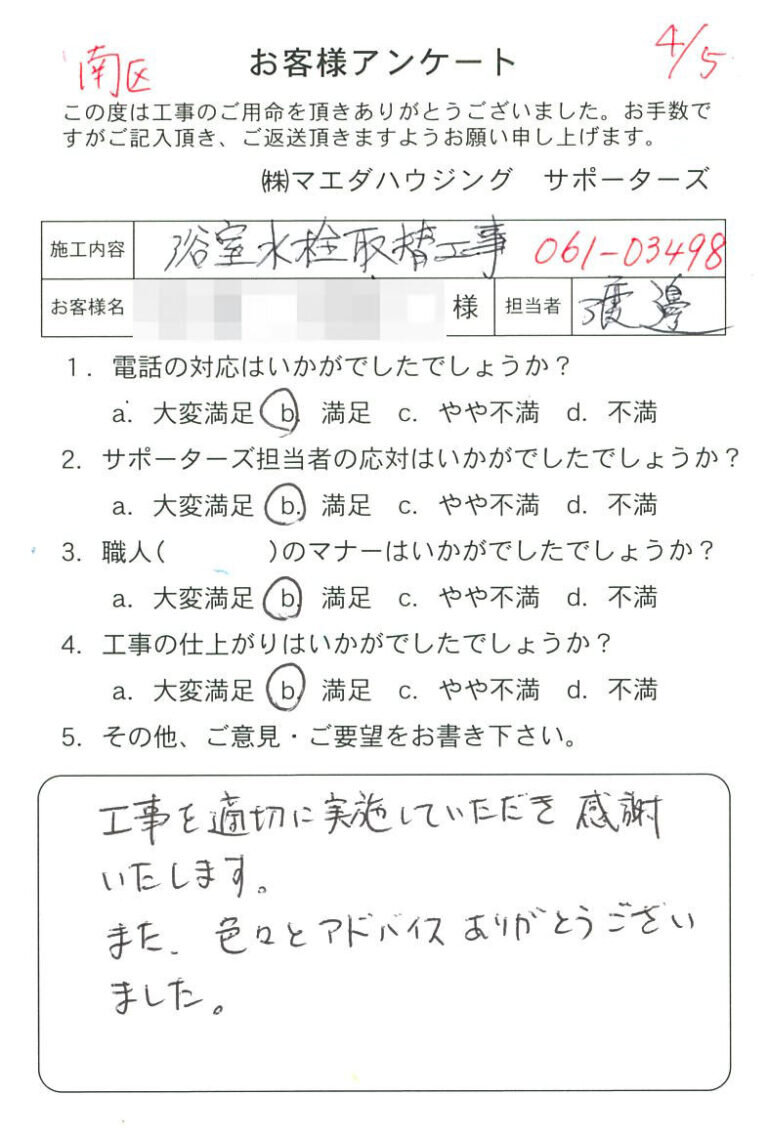 南区 お客様アンケート 4/5
この度は工事のご用命を頂きありがとうございました。お手数で
すがご記入頂き、ご返送頂きますようお願い申し上げます。
㈱マエダハウジング サポーターズ
施工内容 浴室水栓取替工事 061-03498
お客様名 様 担当者 渡邊
1. 電話の対応はいかがでしたでしょうか?
a. 大変満足 b. 満足 c. やや不満 d. 不満
2. サポーターズ担当者の応対はいかがでしたでしょうか?
a. 大変満足 b. 満足 c. やや不満 d. 不満
3. 職人( )のマナーはいかがでしたでしょうか?
a. 大変満足 b. 満足 c. やや不満 d. 不満
4. 工事の仕上がりはいかがでしたでしょうか?
a. 大変満足 b. 満足 c. やや不満 d. 不満
5. その他、ご意見・ご要望をお書き下さい。
工事を適切に実施していただき感謝
いたします。
また、色々とアドバイスありがとうござい
ました。